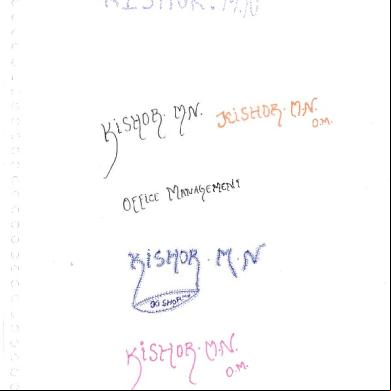 KISHOR. M.N
KISHOR. M.N. KISHOR. M.N.
O.M.
OFFICE MANAGEMENT
KISHOR. M.N
KISHOR. M.N.
O.M.